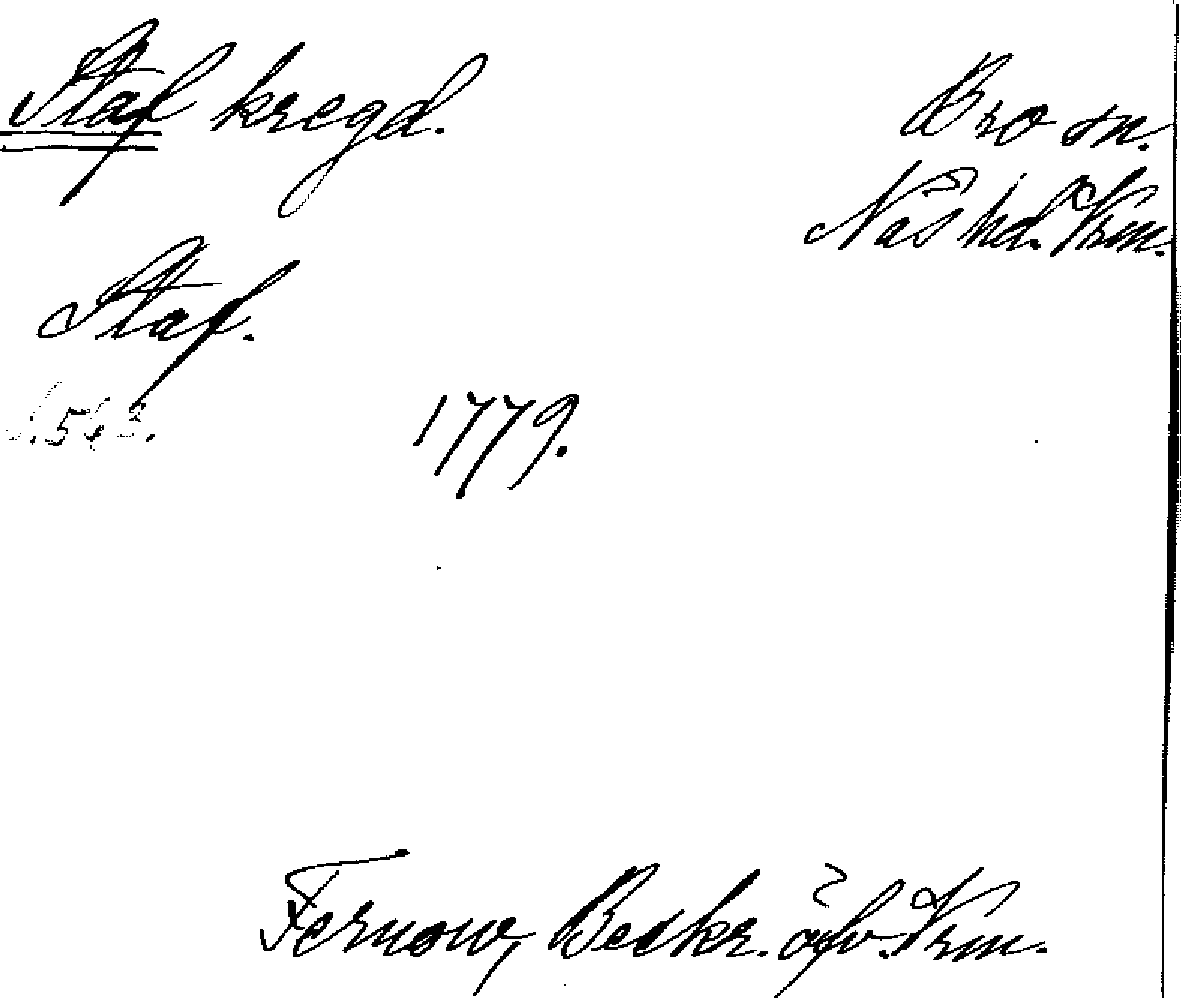 Staf kregd.
Bro sn.
Näs hd. Vrm.
Staf.
S. 543.
1779.
Fernow, Beskr. öfv. Vrm.